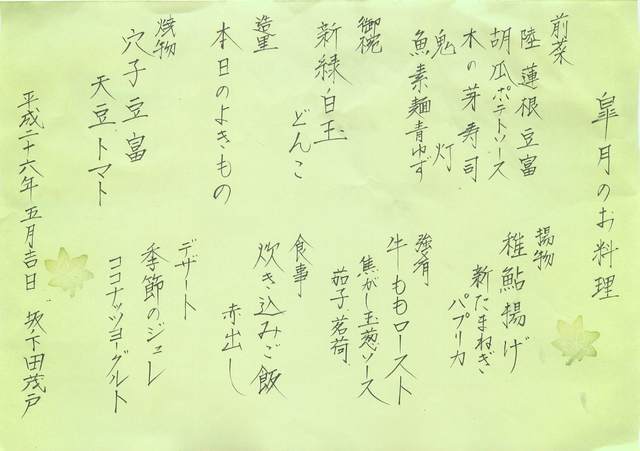 皐月のお料理
前菜
陸蓮根豆富
胡瓜ポテトソース
木の芽寿司
鬼灯
魚素麺青ゆず
御椀
新緑白玉
どんこ
造里
本日のよきもの
焼物
穴子豆富
天豆トマト
揚物
稚鮎揚げ
新たまねぎ
パプリカ
強肴
牛ももロースト
焦がし玉葱ソース
茄子茗荷
食事
炊き込みご飯
赤出し
デザート
季節のジュレ
ココナッツヨーグルト
平成二十六年五月吉日 坂下田茂戸